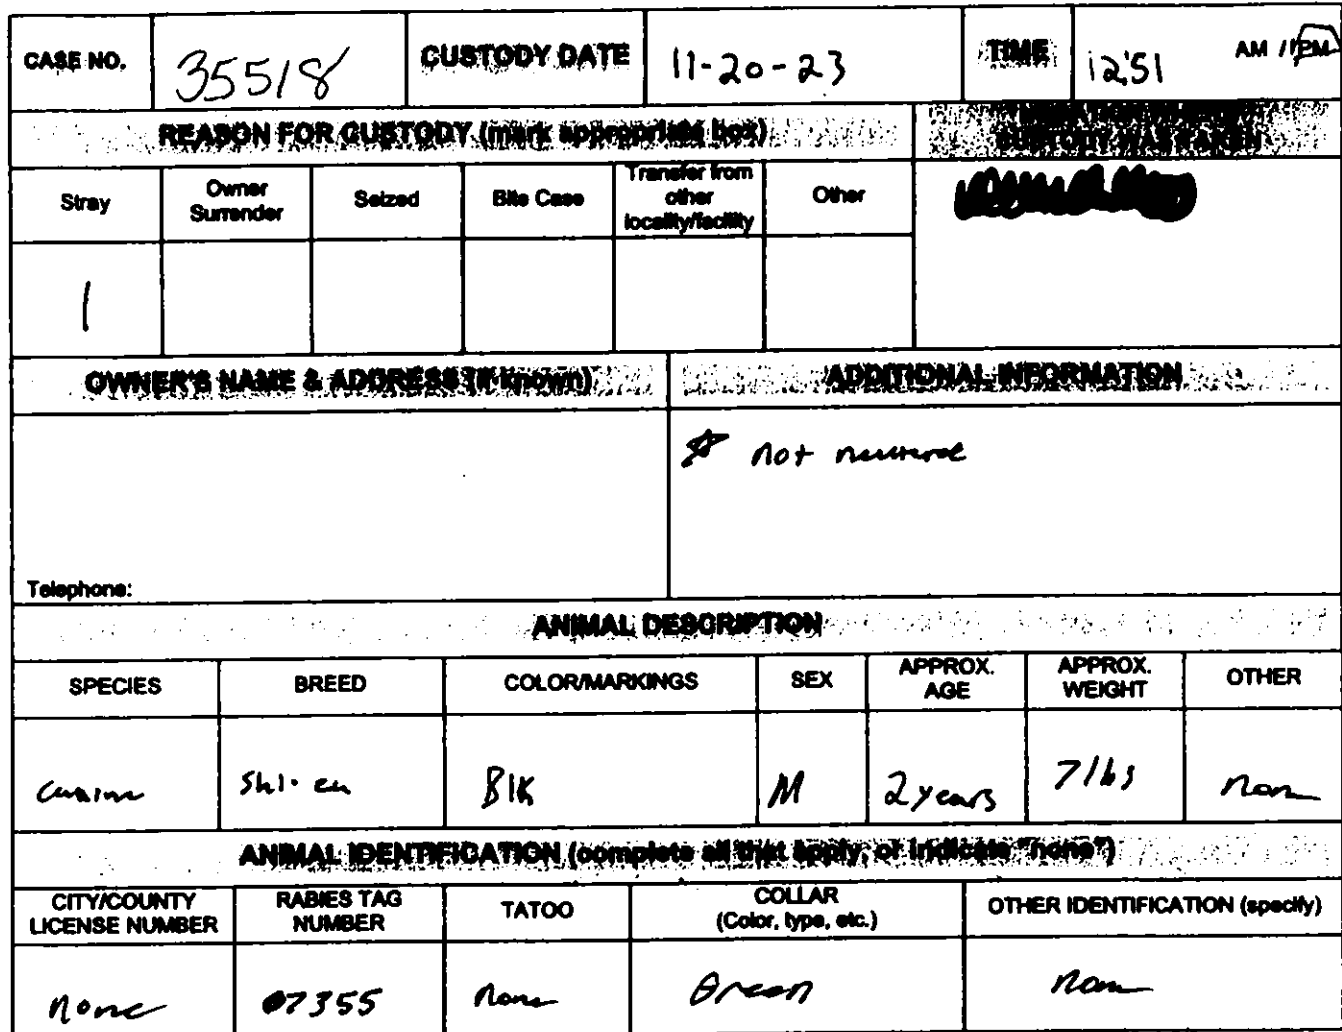 CASE NO. 35518 CUSTODY DATE 11-20-23 TIME 12:51 AM / PM
REASON FOR CUSTODY (mark appropriate box)
CUSTODY WAS TAKEN
Stray
Owner Surrender
Seized
Bite Case
Transfer from other locality/facility
Other
1
OWNER'S NAME & ADDRESS (if known) ADDITIONAL INFORMATION
not
Telephone:
ANIMAL DESCRIPTION
SPECIES BREED COLOR/MARKINGS SEX APPROX. AGE APPROX. WEIGHT OTHER
canine Blk M 2 years 7 lbs none
ANIMAL IDENTIFICATION (complete all that apply, or indicate "none")
CITY/COUNTY LICENSE NUMBER RABIES TAG NUMBER TATOO COLLAR (Color, type, etc.) OTHER IDENTIFICATION (specify)
none 07355 none Green none